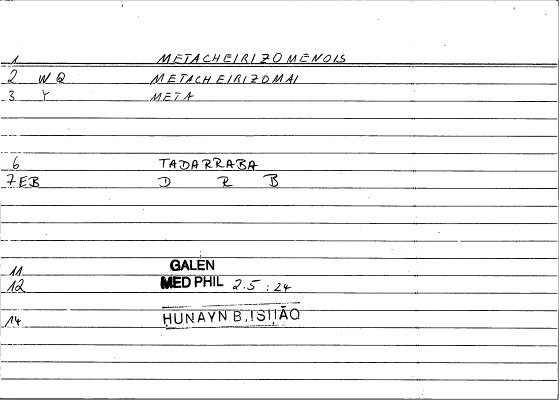 1 METACHEIRIZOMENOIS
2 WQ METACHEIRIZOMAI
3 Y META
6 TADARRABA
7 EB D R B
11 GALEN
12 MED PHIL 2.5 : 24
14 HUNAYN B. ISḤĀQ